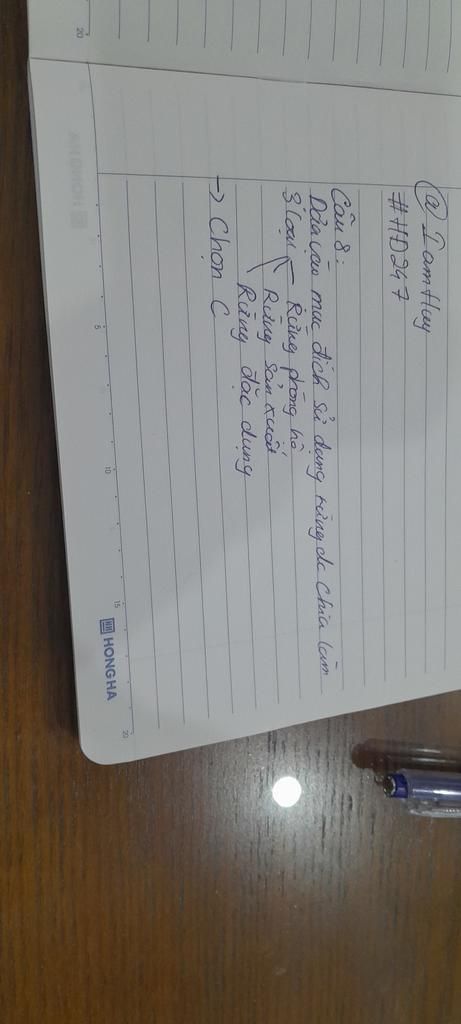 @ IamHuy
#HD247
Câu 8:
Dựa vào mục đích sử dụng rừng đc chia làm
3 loại Rừng phòng hộ
Rừng sản xuất
Rừng đặc dụng
→ Chọn C
HONG HA
5
10
15
20
20